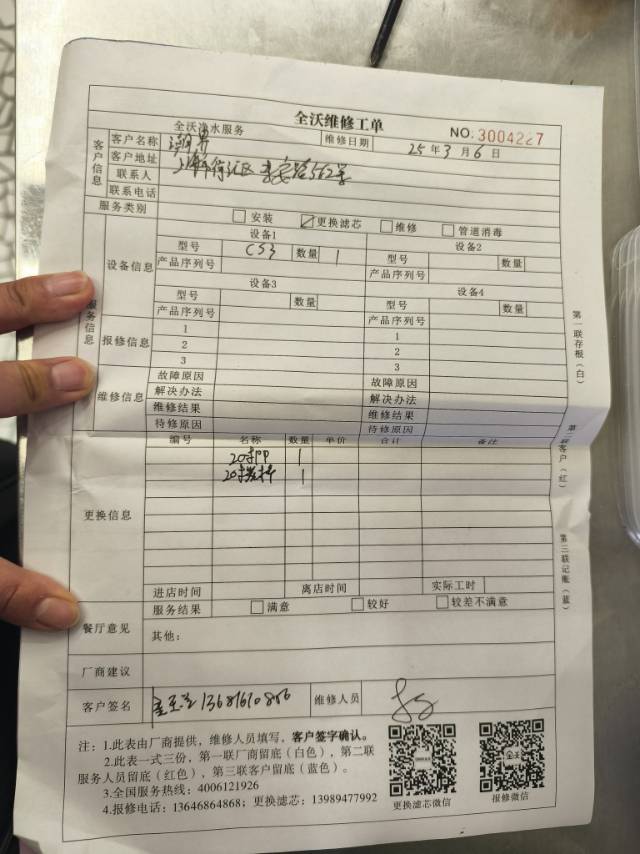 全沃维修工单
全沃净水服务 维修日期 25年3月6日 NO. 3004227
客户信息
客户名称
客户地址
联系人
联系电话
服务类别 安装 更换滤芯 维修 管道消毒
服务信息
设备信息
设备1 设备2
型号 CS3 数量 1 型号 数量
产品序列号 产品序列号
设备3 设备4
型号 数量 型号 数量
产品序列号 产品序列号
报修信息
1 1
2 2
3 3
维修信息
故障原因 故障原因
解决办法 解决办法
维修结果 维修结果
待修原因 待修原因
更换信息
编号 名称 数量 单价 合计 备注
20寸PP 1
20寸 1
进店时间 离店时间 实际工时
服务结果 满意 较好 较差不满意
餐厅意见
其他：
厂商建议
客户签名 维修人员
注：1.此表由厂商提供，维修人员填写，客户签字确认。
2.此表一式三份，第一联厂商留底（白色），第二联
服务人员留底（红色），第三联客户留底（蓝色）。
3.全国服务热线：4006121926
4.报修电话：13646864868；更换滤芯：13989477992
更换滤芯微信 报修微信
第一联存根（白）
第二联客户（红）
第三联记账（蓝）